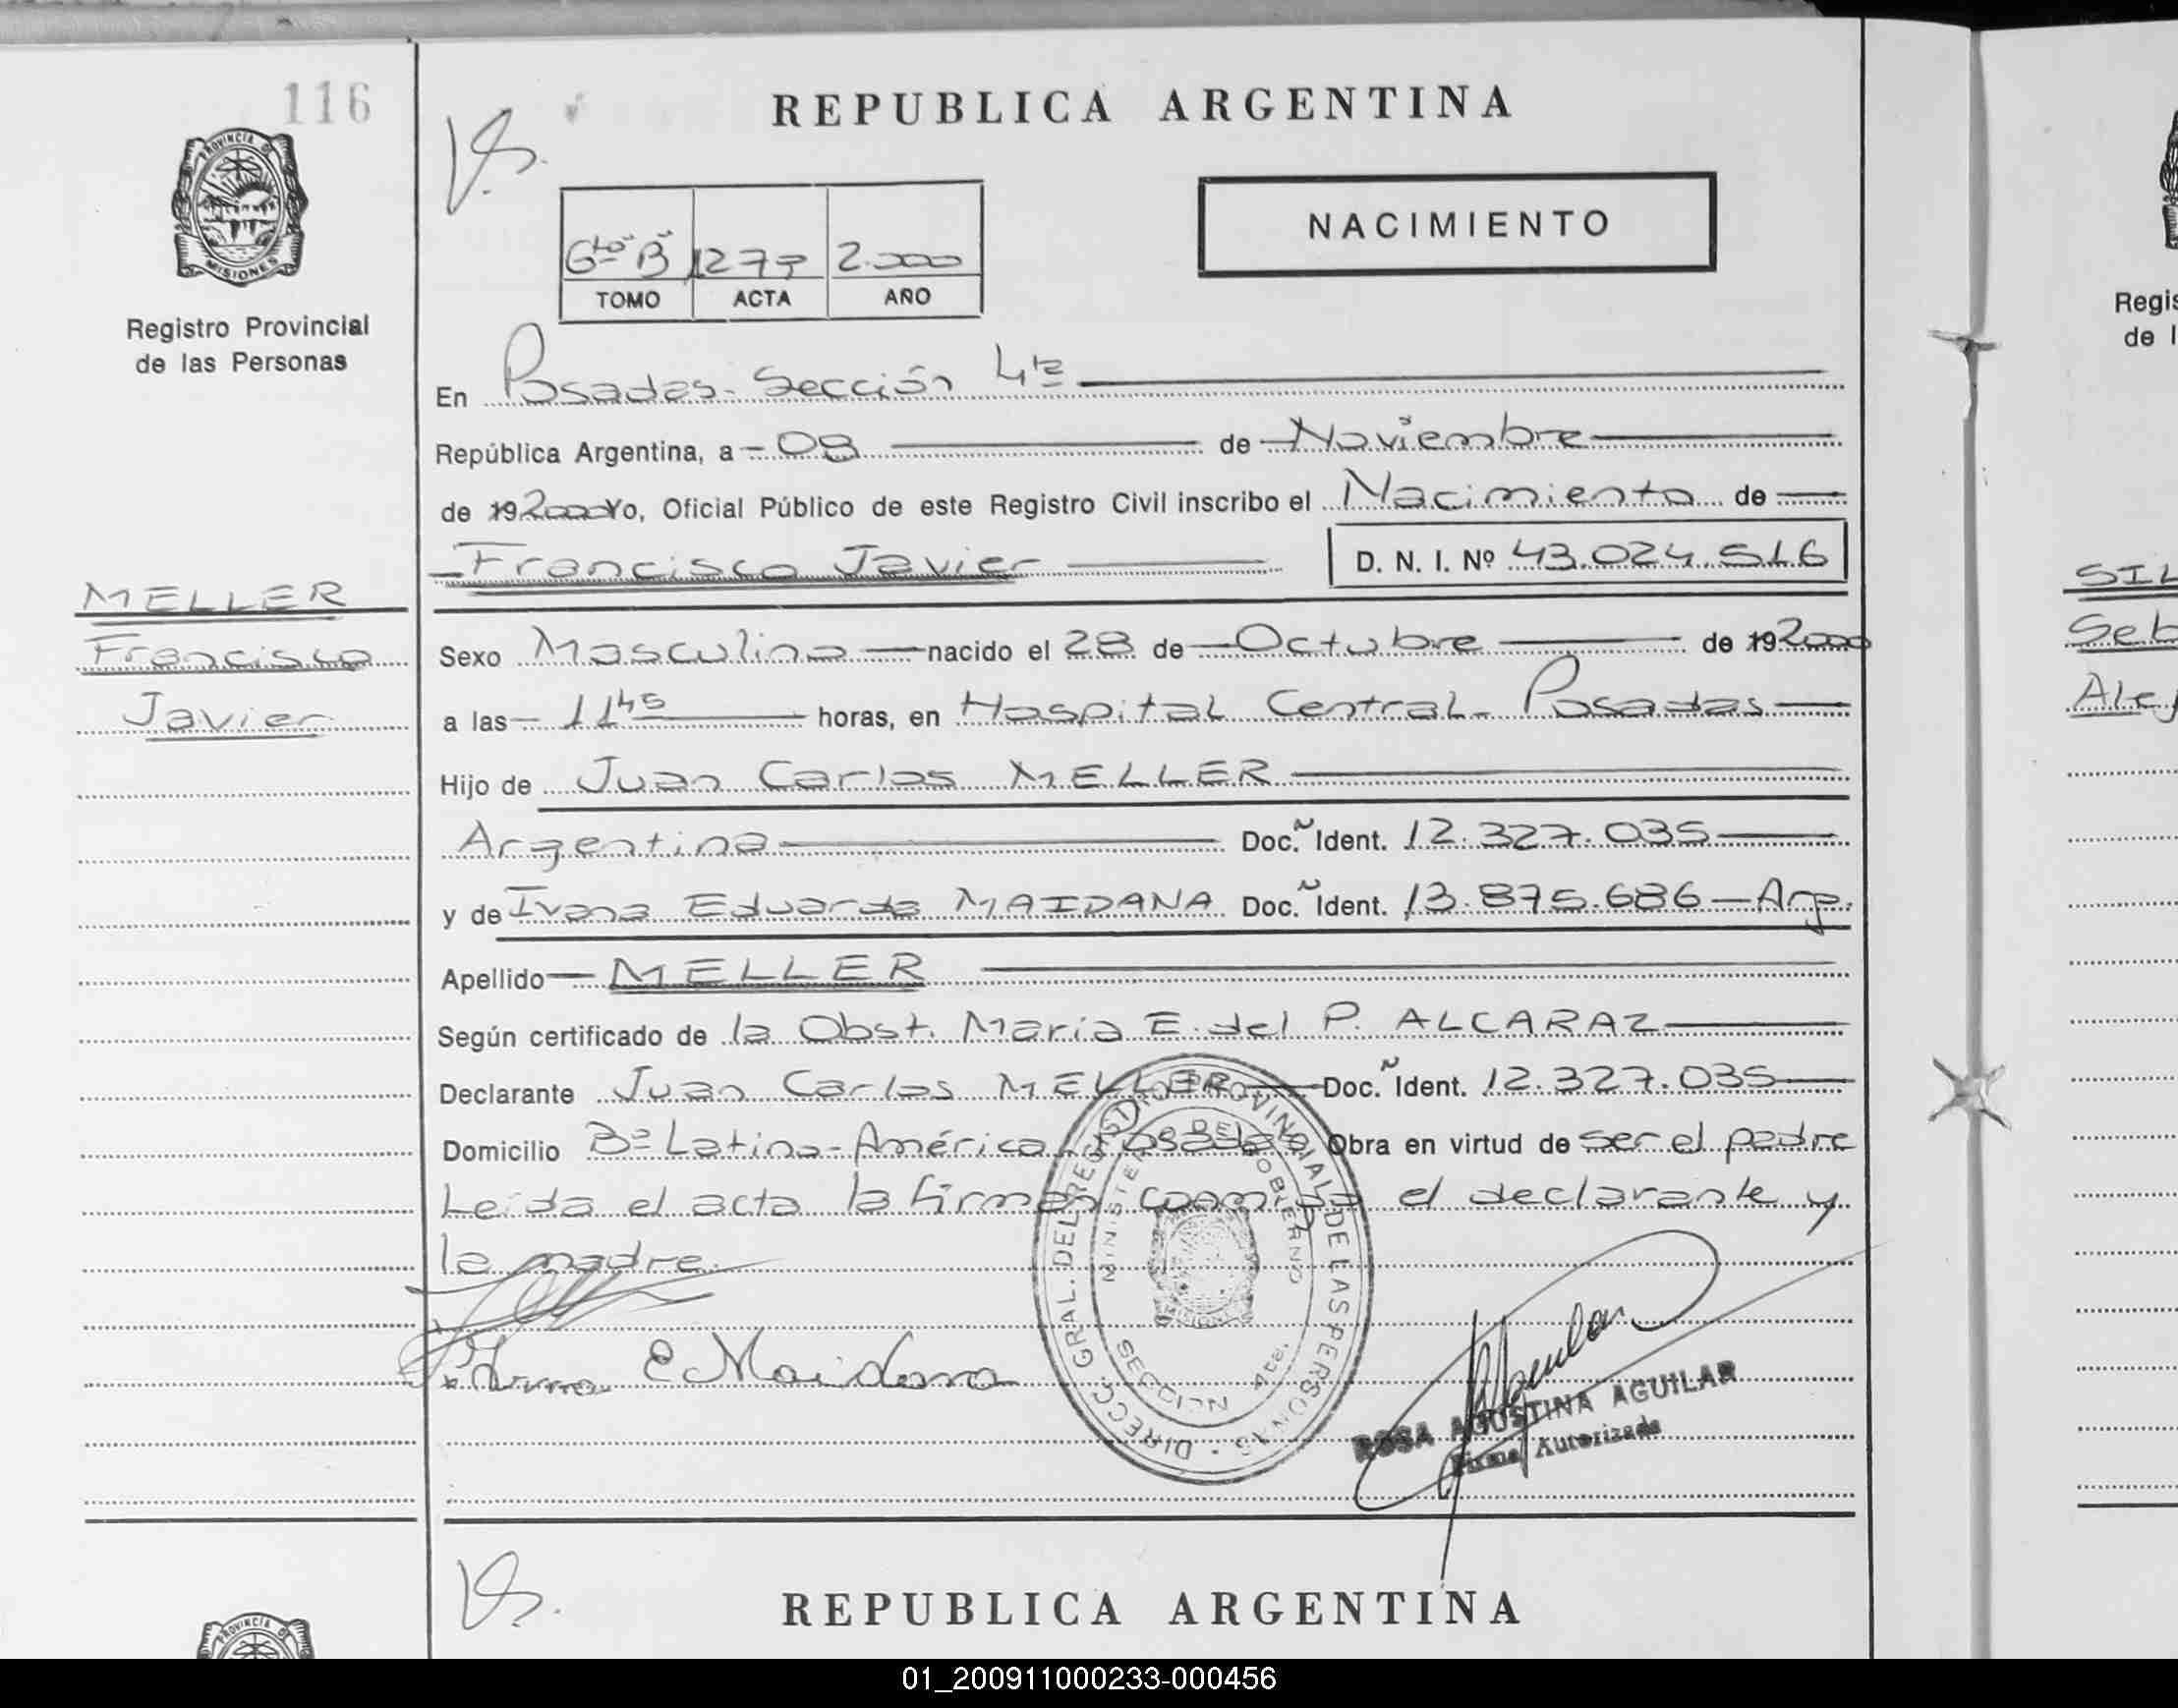 116
REPUBLICA ARGENTINA
PROVINCIA DE
MISIONES
Registro Provincial
de las Personas
NACIMIENTO
6to B 1277 2.000
TOMO ACTA AÑO
En Posadas - Sección 4ta
República Argentina, a - 08 de Noviembre
de 19 2000 Yo, Oficial Público de este Registro Civil inscribo el Nacimiento de
Francisco Javier D. N. I. Nº 43.024.516
MELLER
Francisco
Javier
Sexo Masculino nacido el 28 de Octubre de 19 2000
a las 11 45 horas, en Hospital Central - Posadas
Hijo de Juan Carlos MELLER
Argentina Doc. Ident. 12.327.035
y de Ivana Eduarda MAIDANA Doc. Ident. 13.875.686 - Arg.
Apellido MELLER
Según certificado de la Obst. María E. del P. ALCARAZ
Declarante Juan Carlos MELLER Doc. Ident. 12.327.035
Domicilio Bº Latino-América Posadas Obra en virtud de ser el padre
Leída el acta la firman conmigo el declarante y
la madre.
E Maidana
DIRECC. GRAL. DEL REGISTRO PROVINCIAL DE LAS PERSONAS
MINISTERIO DE GOBIERNO
SECCION 4ta.
Aguilar
ROSA AGUSTINA AGUILAR
Firma Autorizada
REPUBLICA ARGENTINA
PROVINCIA DE
Regis
de l
SIL
Seb
Alej
01_200911000233-000456